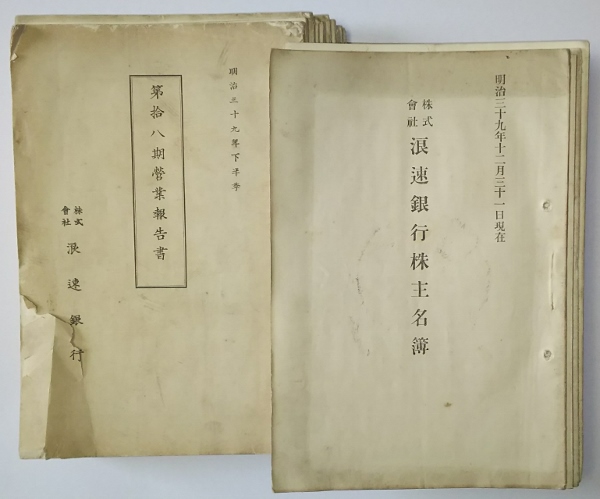 明治三十九年十二月三十一日現在
株式會社 浪速銀行株主名簿
明治三十九年下半季
第拾八期營業報告書
株式會社 浪速銀行